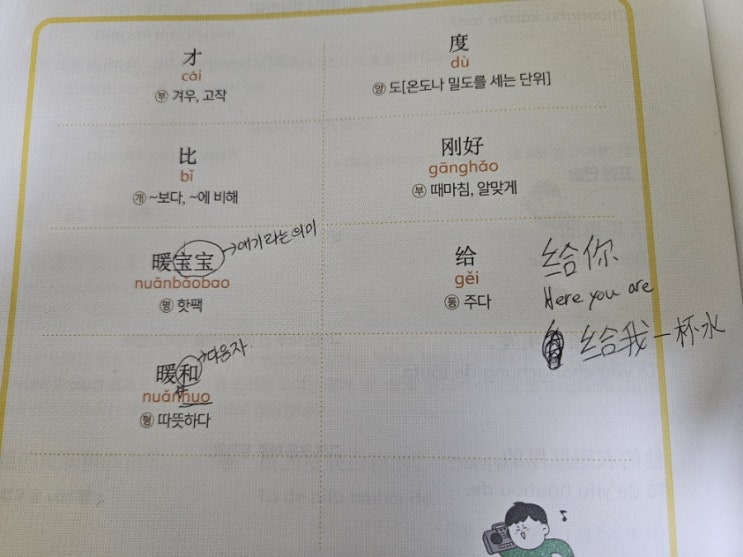 才
cái
부 겨우, 고작
度
dù
양 도[온도나 밀도를 세는 단위]
比
bǐ
개 ~보다, ~에 비해
刚好
gānghǎo
부 때마침, 알맞게
暖宝宝 →애기라는의미
nuǎnbǎobao
명 핫팩
给
gěi
동 주다
给你
Here you are
给我一杯水
暖和 →다음자
nuǎnhuo
형 따뜻하다